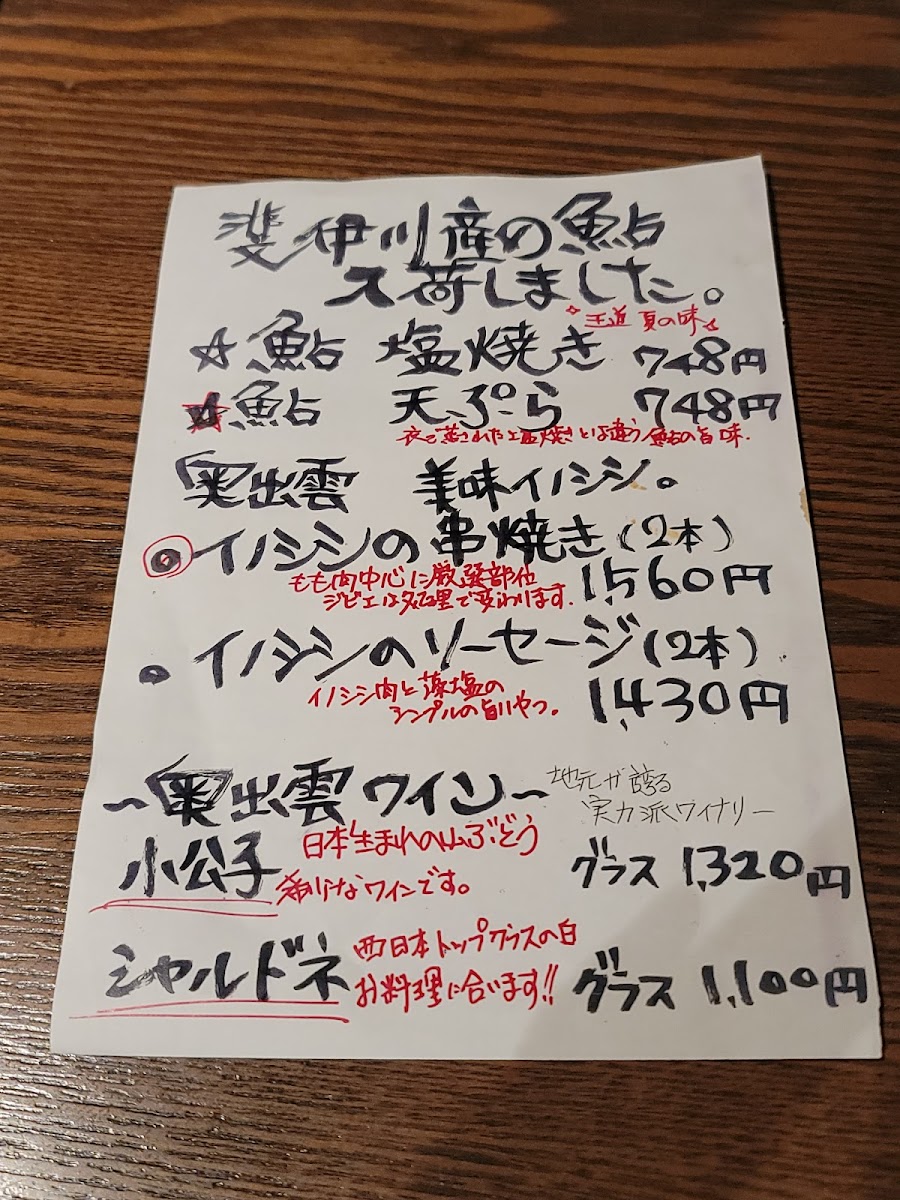 斐伊川産の鮎
入荷しました。
王道 夏の味
☆鮎 塩焼き 748円
☆鮎 天ぷら 748円
衣で蒸された塩焼きとは違う鮎の旨味.
奥出雲 美味イノシシ。
◉イノシシの串焼き(2本)
もも肉中心に厳選部位 1,560円
ジビエは処理で変わります.
●イノシシのソーセージ(2本)
イノシシ肉と藻塩の 1,430円
シンプルの旨いやつ。
~奥出雲ワイン~
地元が誇る
実力派ワイナリー
日本生まれの山ぶどう
小公子 グラス 1,320円
なワインです。
西日本トップクラスの白
シャルドネ グラス 1,100円
お料理に合います!!